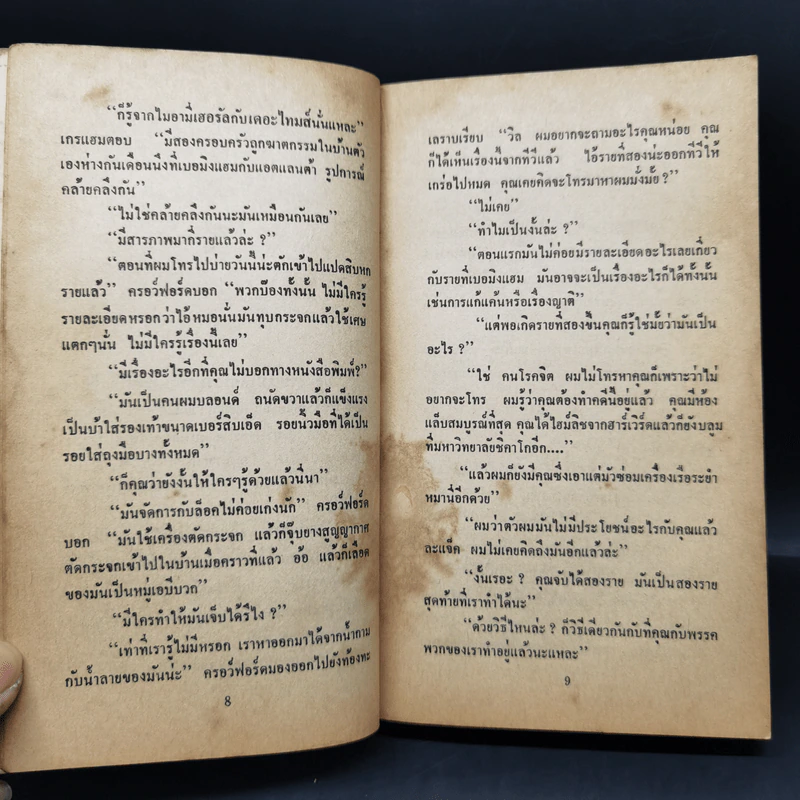 “ก็รู้จากไมอามี่เฮอรัลกับเดอะไทมส์นั่นแหละ”
เกรแฮมตอบ “มีสองครอบครัวถูกฆาตกรรมในบ้านตัว
เองห่างกันเดือนนึงที่เบอมิงแฮมกับแอตแลนต้า รูปการณ์
คล้ายคลึงกัน”
“ไม่ใช่คล้ายคลึงกันนะมันเหมือนกันเลย”
“มีสารภาพมากี่รายแล้วล่ะ ?
“ตอนที่ผมโทรไปบ่ายวันนี้น่ะตักเข้าไปแปดสิบหก
รายแล้ว” ครอว์ฟอร์ดบอก “พวกบ๊องทั้งนั้น ไม่มีใครรู้
รายละเอียดหรอกว่าไอ้หมอนั่นมันทุบกระจกแล้วใช้เศษ
แตกๆนั่น ไม่มีใครรู้เรื่องนี้เลย”
“มีเรื่องอะไรอีกที่คุณไม่บอกทางหนังสือพิมพ์?”
“มันเป็นคนผมบลอนด์ ถนัดขวาแล้วก็แข็งแรง
เป็นบ้าใส่รองเท้าขนาดเบอร์สิบเอ็ด รอยนิ้วมือที่ได้เป็น
รอยใส่ถุงมือบางทั้งหมด”
“ก็คุณว่ายังงั้นให้ใครๆรู้ด้วยแล้วนี่นา”
“มันจัดการกับล็อคไม่ค่อยเก่งนัก” ครอว์ฟอร์ด
บอก “มันใช้เครื่องตัดกระจก แล้วก็จุ๊บยางสูญญากาศ
ตัดกระจกเข้าไปในบ้านเมื่อคราวที่แล้ว อ้อ แล้วก็เลือด
ของมันเป็นหมู่เอบีบวก”
“มีใครทำให้มันเจ็บได้รึไง ?
“เท่าที่เรารู้ไม่มีหรอก เราหาออกมาได้จากน้ำกาม
กับน้ำลายของมันน่ะ” ครอว์ฟอร์ดมองออกไปยังท้องทะ
8
เลราบเรียบ “วิล ผมอยากจะถามอะไรคุณหน่อย คุณ
ก็ได้เห็นเรื่องนี้จากทีวีแล้ว ไอ้รายที่สองน่ะออกทีวีให้
เกร่อไปหมด คุณเคยคิดจะโทรมาหาผมมั่งมั้ย ?”
“ไม่เคย”
“ทำไมเป็นงั้นล่ะ ?
“ตอนแรกมันไม่ค่อยมีรายละเอียดอะไรเลยเกี่ยว
กับรายที่เบอมิงแฮม มันอาจจะเป็นเรื่องอะไรก็ได้ทั้งนั้น
เช่นการแก้แค้นหรือเรื่องญาติ”
“แต่พอเกิดรายที่สองขึ้นคุณก็รู้ใช่มั้ยว่ามันเป็น
อะไร ?”
“ใช่ คนโรคจิต ผมไม่โทรหาคุณก็เพราะว่าไม่
อยากจะโทร ผมรู้ว่าคุณต้องทำคดีนี้อยู่แล้ว คุณมีห้อง
แล็บสมบูรณ์ที่สุด คุณได้ไฮม์ลิชจากฮาร์เวิร์ดแล้วก็ยังบลูม
ที่มหาวิทยาลัยชิคาโกอีก....”
“แล้วผมก็ยังมีคุณซึ่งเอาแต่มัวซ่อมเครื่องเรือระยำ
หมานี่อีกด้วย”
“ผมว่าตัวผมมันไม่มีประโยชน์อะไรกับคุณแล้ว
ละแจ็ค ผมไม่เคยคิดถึงมันอีกแล้วล่ะ”
“งั้นเรอะ ? คุณจับได้สองราย มันเป็นสองราย
สุดท้ายที่เราทำได้นะ”
“ด้วยวิธีไหนล่ะ ? ก็วิธีเดียวกันกับที่คุณกับพรรค
พวกของเราทำอยู่แล้วนะแหละ”
9